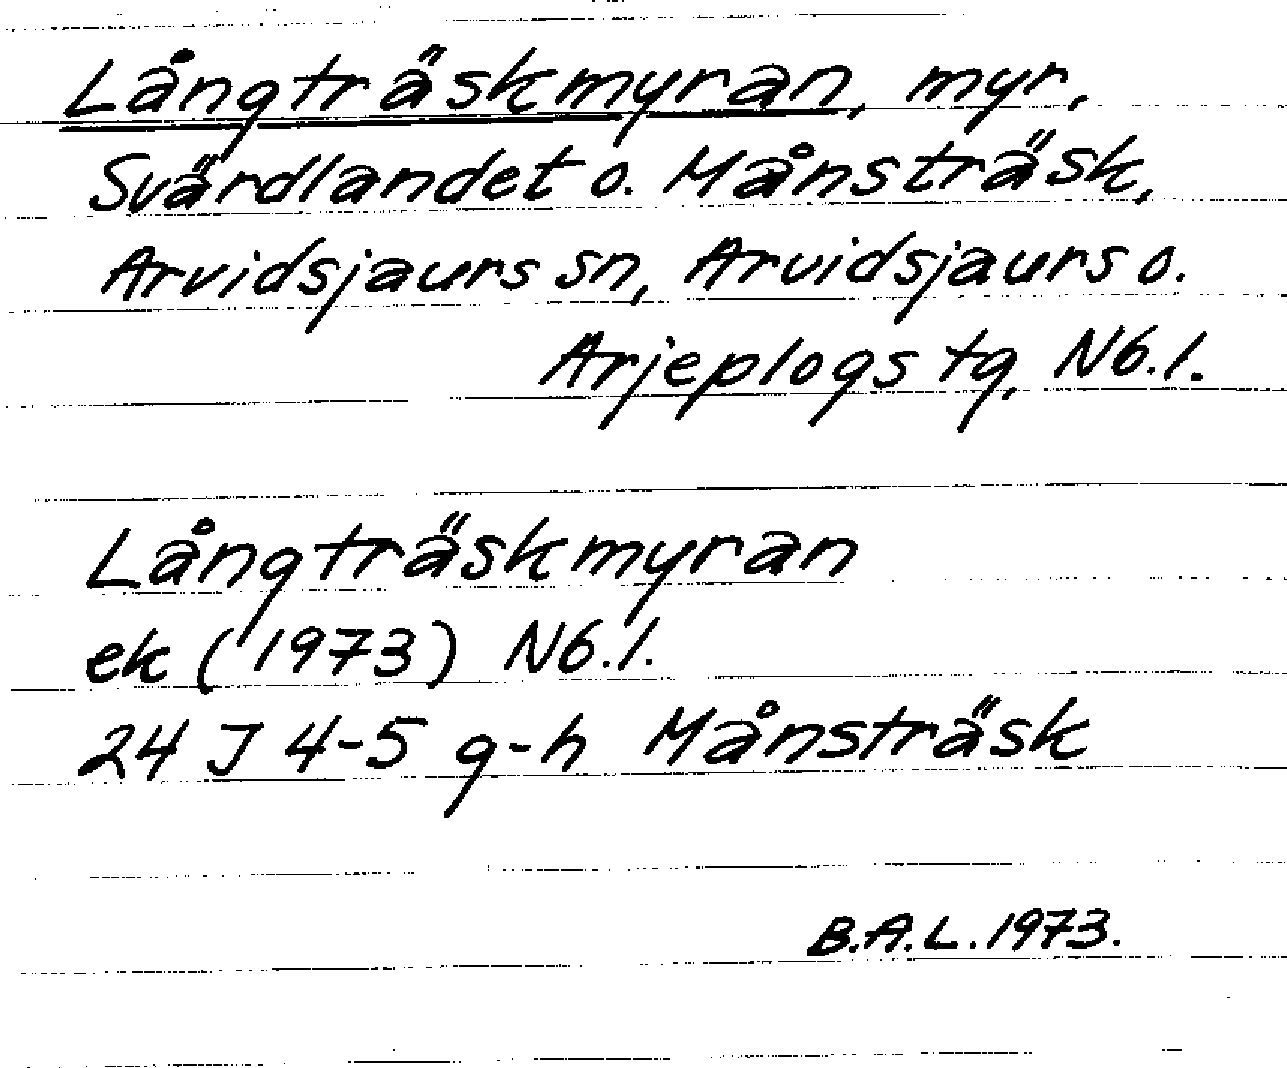 Långträskmyran, myr,
Svärdlandet o. Månsträsk,
Arvidsjaurs sn, Arvidsjaurs o.
Arjeplogs tg, Nb.l.
Långträskmyran
ek (1973) Nb.l.
24 J 4-5 g-h Månsträsk
B.A.L. 1973.